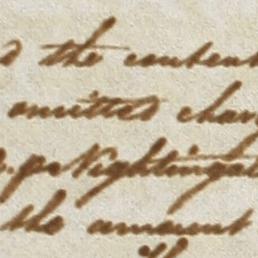 the content
omitted char
p Nightingal
the amount
Th